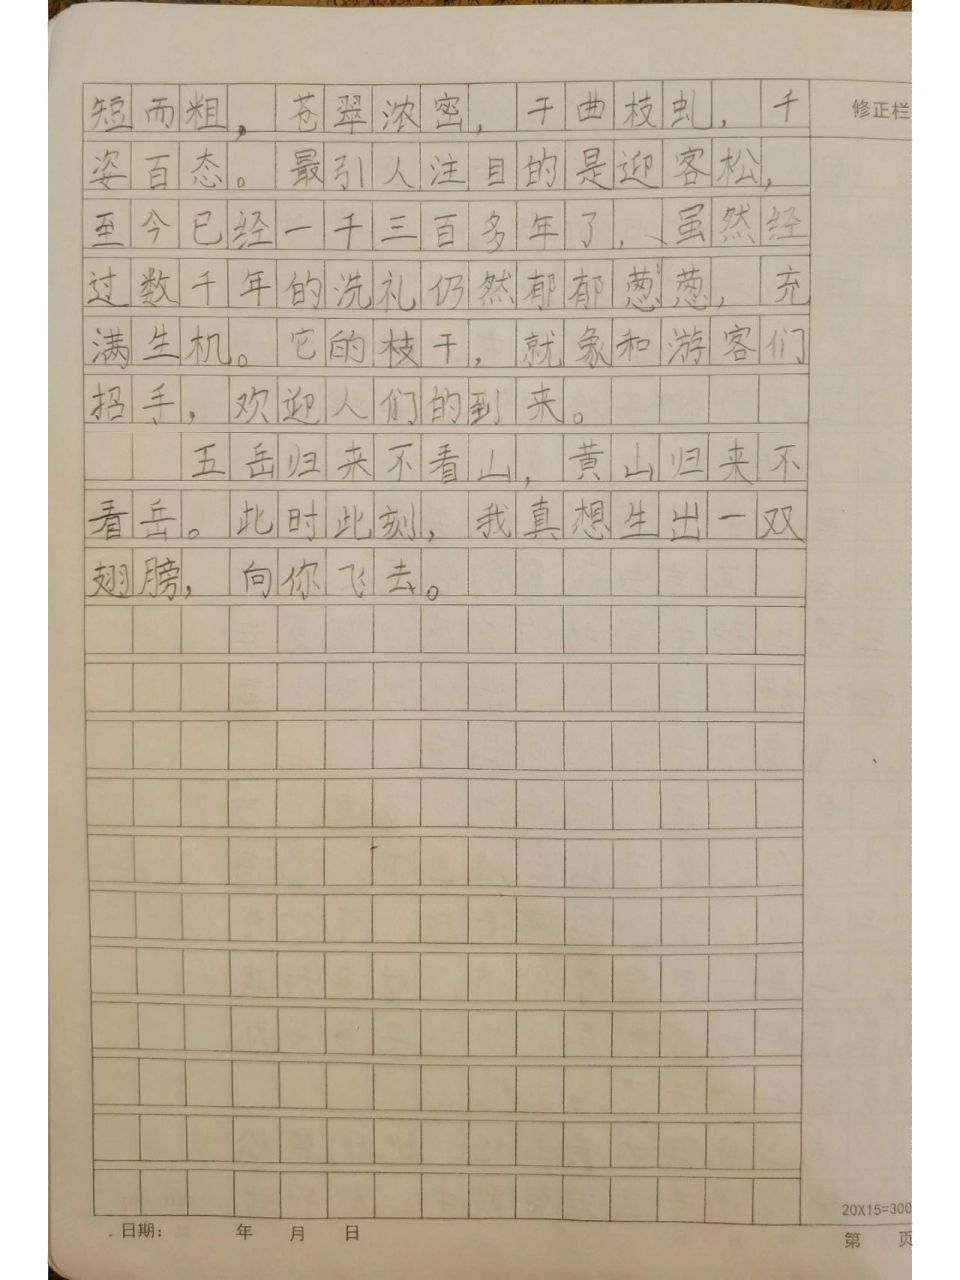 短而粗，苍翠浓密，干曲枝虬，千
修正栏
姿百态。最引人注目的是迎客松，
至今已经一千三百多年了，虽然经
过数千年的洗礼仍然郁郁葱葱，充
满生机。它的枝干，就象和游客们
招手，欢迎人们的到来。
五岳归来不看山，黄山归来不
看岳。此时此刻，我真想生出一双
翅膀，向你飞去。
20X15=300
日期： 年 月 日
第 页